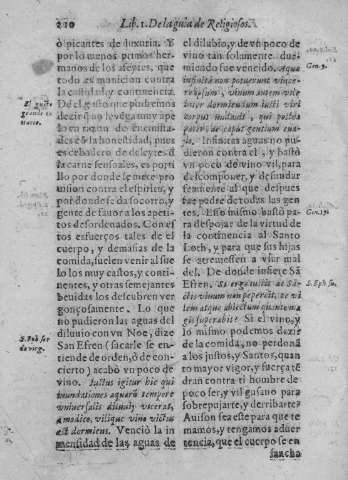 210 Lib. I. De la guia de Religiosos.
ò picantes de luxuria. Y
por lo menos primos her-
manos de los afeytes, que
todo es municion contra
la castidad, y continencia.
De el gusto que pudremos
dezir que
en razon de enemista-
des con la honestidad, pues
es cebadero de deleytes de
la carne sensuales, es porti-
llo por donde se mete pro
uision contra el espiritu, y
por donde se da socorro, y
gente de fauor a los apeti-
tos desordenados. Con es-
tos esfuerços tales de el
comer, y demasias de la
comida, suelen venir al sue
lo los muy castos, y conti-
nentes, y otras semejantes
beuidas los descubren ver
gonçosamente. Lo que
no pudieron las aguas del
diluuio con vn Noe, dize
San Efren (sacarle se en-
tiende de orden, ò de con-
cierto) acabò vn poco de
vino. Iustus igitur hic qui
inundationes aquarũ tempore
vniuersalis diluuij vicerat,
a modico, vilique vino victus
est dormiens. Venciò la in
mensidad de las aguas de
el gusto
S. Eph ser
de virg.
el dilubio, y de vn poco de
vino tan solamente due-
mido fue vencido. Aqua
infinita non potuerunt vince-
re ipsum, vinum autem vile
dormientem iusti viri
corpus nudauit, qui postea
pater, ac caput gentium eua-
sit. Infinitas aguas no pu-
dieron contra el, basto
vn poco de vino vil, para
descomponer, y desnudar
feamente al que despues
fue padre de todas las gen
tes. Esso mismo bastò pa-
ra despojar de la virtud de
la continencia al Santo
Loth, y para que sus hijas
se atreuiessen a vsar mal
del. De donde infiere Sã
Efren. Si ergo iustis ac San-
ctis vinum non pepercit, ac vi
lem atque abiectum quanto ma
gis superabit? Si el vino, y
lo mismo podemos dezir
de la comida, no perdonà
a los justos, y Santos, quan
to mayor vigor, y fuerça tẽ
dran contra ti hombre de
poco ser, y vil gusano para
sobrepujarte, y derribarte?
Auiso sea este para que te
mamos, y tengamos aduer
tencia, que el cuerpo se en
sancha
Gen. 9.
Gen. 19.
S. Eph su.